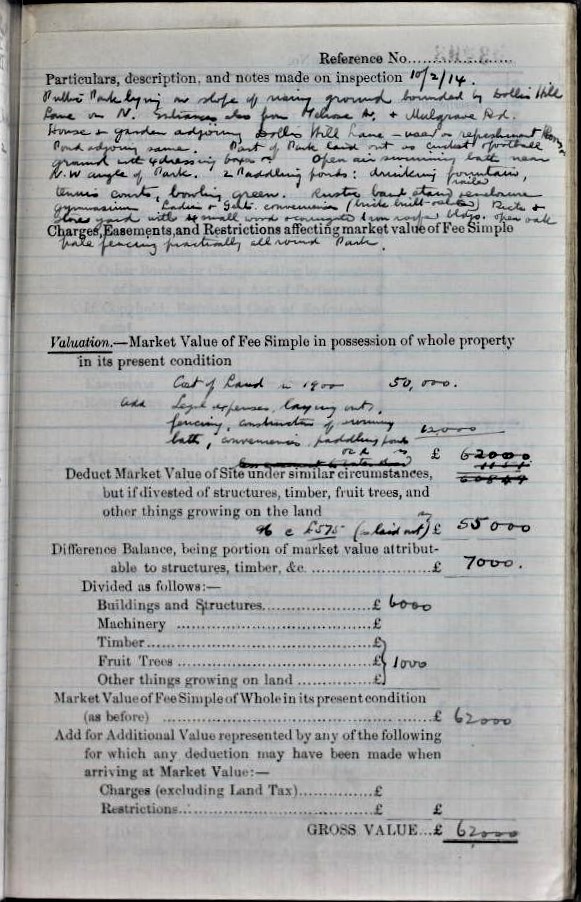 Reference No.....................
Particulars, description, and notes made on inspection 10/2/14.
Public Park lying on slope of rising ground bounded by Dollis Hill
Lane on N. Entrances also from Melrose Av. & Mulgrave Rd.
House & garden adjoining Dollis Hill Lane — used as refreshment House
Pond adjoining same. Part of Park laid out as cricket & football
ground with 4 dressing boxes Open air swimming bath near
N.W angle of Park. 2 Paddling ponds: drinking fountain,
tennis courts, bowling green. Rustic band stand railed enclosure
gymnasium Ladies & Gents. conveniences (brick built-slated) Bricks &
stone yard with 4 small wood & corrugated iron roofed bldgs. open oak
Charges, Easements, and Restrictions affecting market value of Fee Simple
pale fencing practically all round Park.
Valuation.—Market Value of Fee Simple in possession of whole property
in its present condition
Cost of Land in 1900 50,000.
Add Legal expenses, laying out,
fencing, construction of swimming
bath, conveniences, paddling ponds 12,000
£ 62000
Deduct Market Value of Site under similar circumstances,
but if divested of structures, timber, fruit trees, and
other things growing on the land
96 @ £575 (as laid out) £ 55000
Difference Balance, being portion of market value attribut-
able to structures, timber, &c. ........................£ 7000.
Divided as follows:—
Buildings and Structures....................£ 6000
Machinery ....................................£
Timber..........................................£
Fruit Trees ....................................£ 1000
Other things growing on land ..............£
Market Value of Fee Simple of Whole in its present condition
(as before) ..................................................£ 62000
Add for Additional Value represented by any of the following
for which any deduction may have been made when
arriving at Market Value:—
Charges (excluding Land Tax)..............£
Restrictions....................................£ £
GROSS VALUE...£ 62000